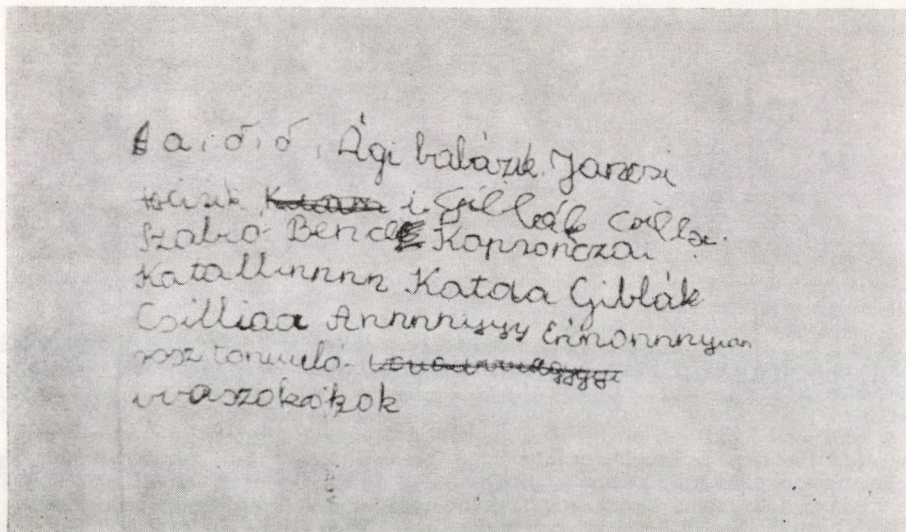 a, ó, ó, Ági babázik Jancsi
i Gilbák Csilla
Szabó Bence Kapronczai
Katallinnnn Kataa Giblák
Csilliaa Annnnnyyyy
rossz tanuló
vvaszokokok